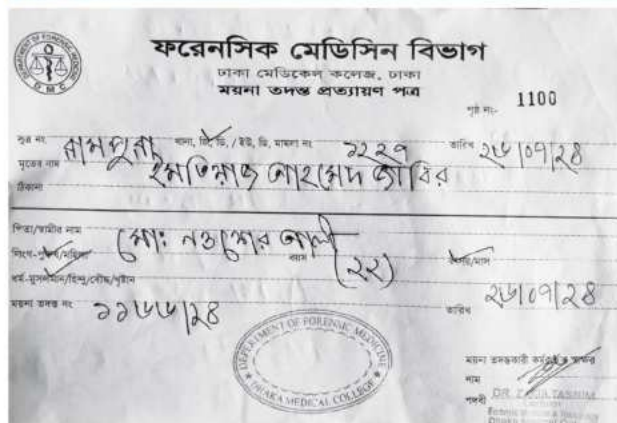 DEPARTMENT OF FORENSIC MEDICINE
DMC
ফরেনসিক মেডিসিন বিভাগ
ঢাকা মেডিকেল কলেজ, ঢাকা
ময়না তদন্ত প্রত্যায়ণ পত্র
পৃষ্ঠা নং- 1100
সূত্র নং রামপুরা থানা, জি, ডি, / ইউ, ডি, মামলা নং ১২২৭ তারিখ ২৬/০৭/২৪
মৃতের নাম ইমতিয়াজ আহমেদ জাবির
ঠিকানা
পিতা/স্বামীর নাম মোঃ নওশের আলী
লিংগ-পুরুষ/মহিলা বয়স (২২) বৎসর/মাস
ধর্ম-মুসলমান/হিন্দু/বৌদ্ধ/খৃষ্টান
ময়না তদন্ত নং ১১৬৬/২৪ তারিখ ২৬/০৭/২৪
DEPERTMENT OF FORENSIC MEDICINE
DHAKA MEDICAL COLLEGE
ময়না তদন্তকারী কর্মকর্তার স্বাক্ষর
নাম
পদবী
DR. TASNIM